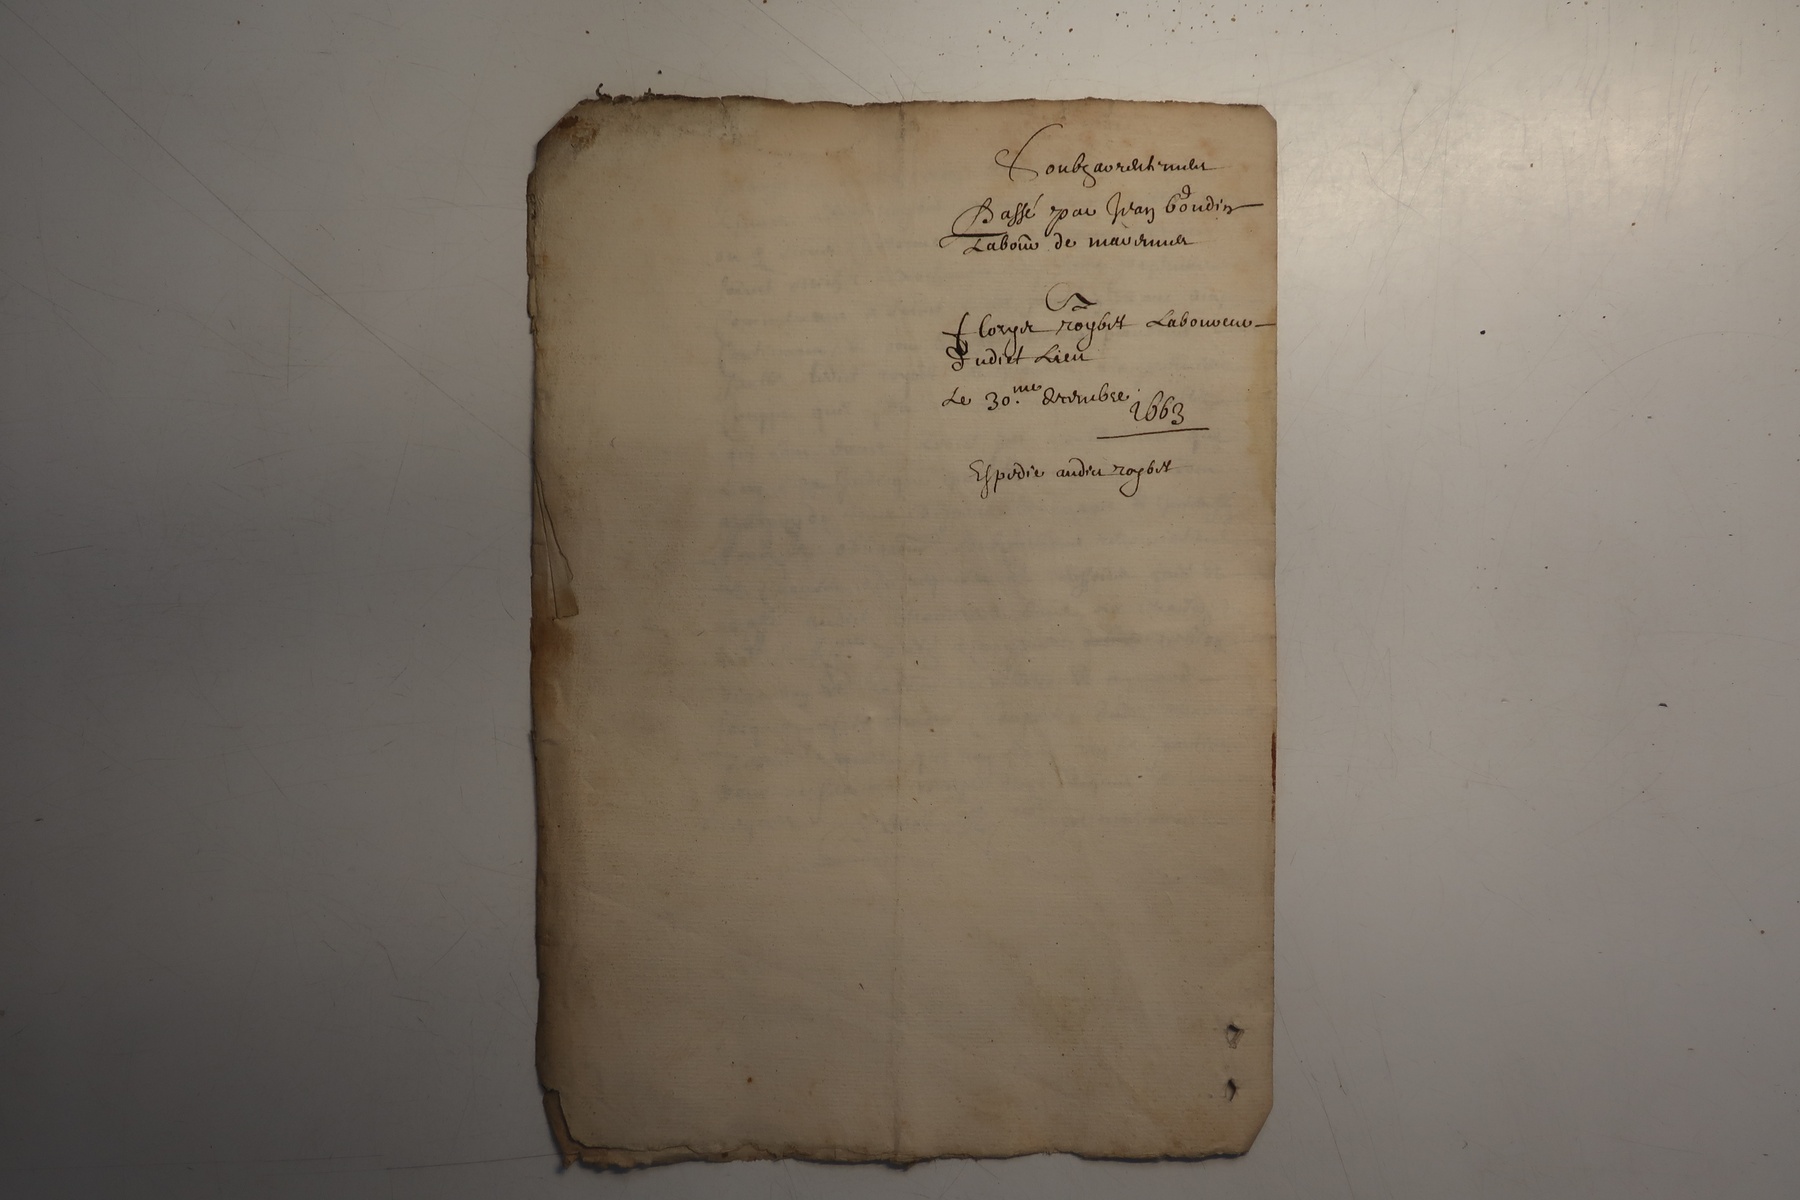 Soubzarrentemen
Passé par Jean boudin
Labour de mavennes
A
floryet roybet Laboureur
dudict Lieu
Le 30.me decembre 1663
Espedie audict roybet